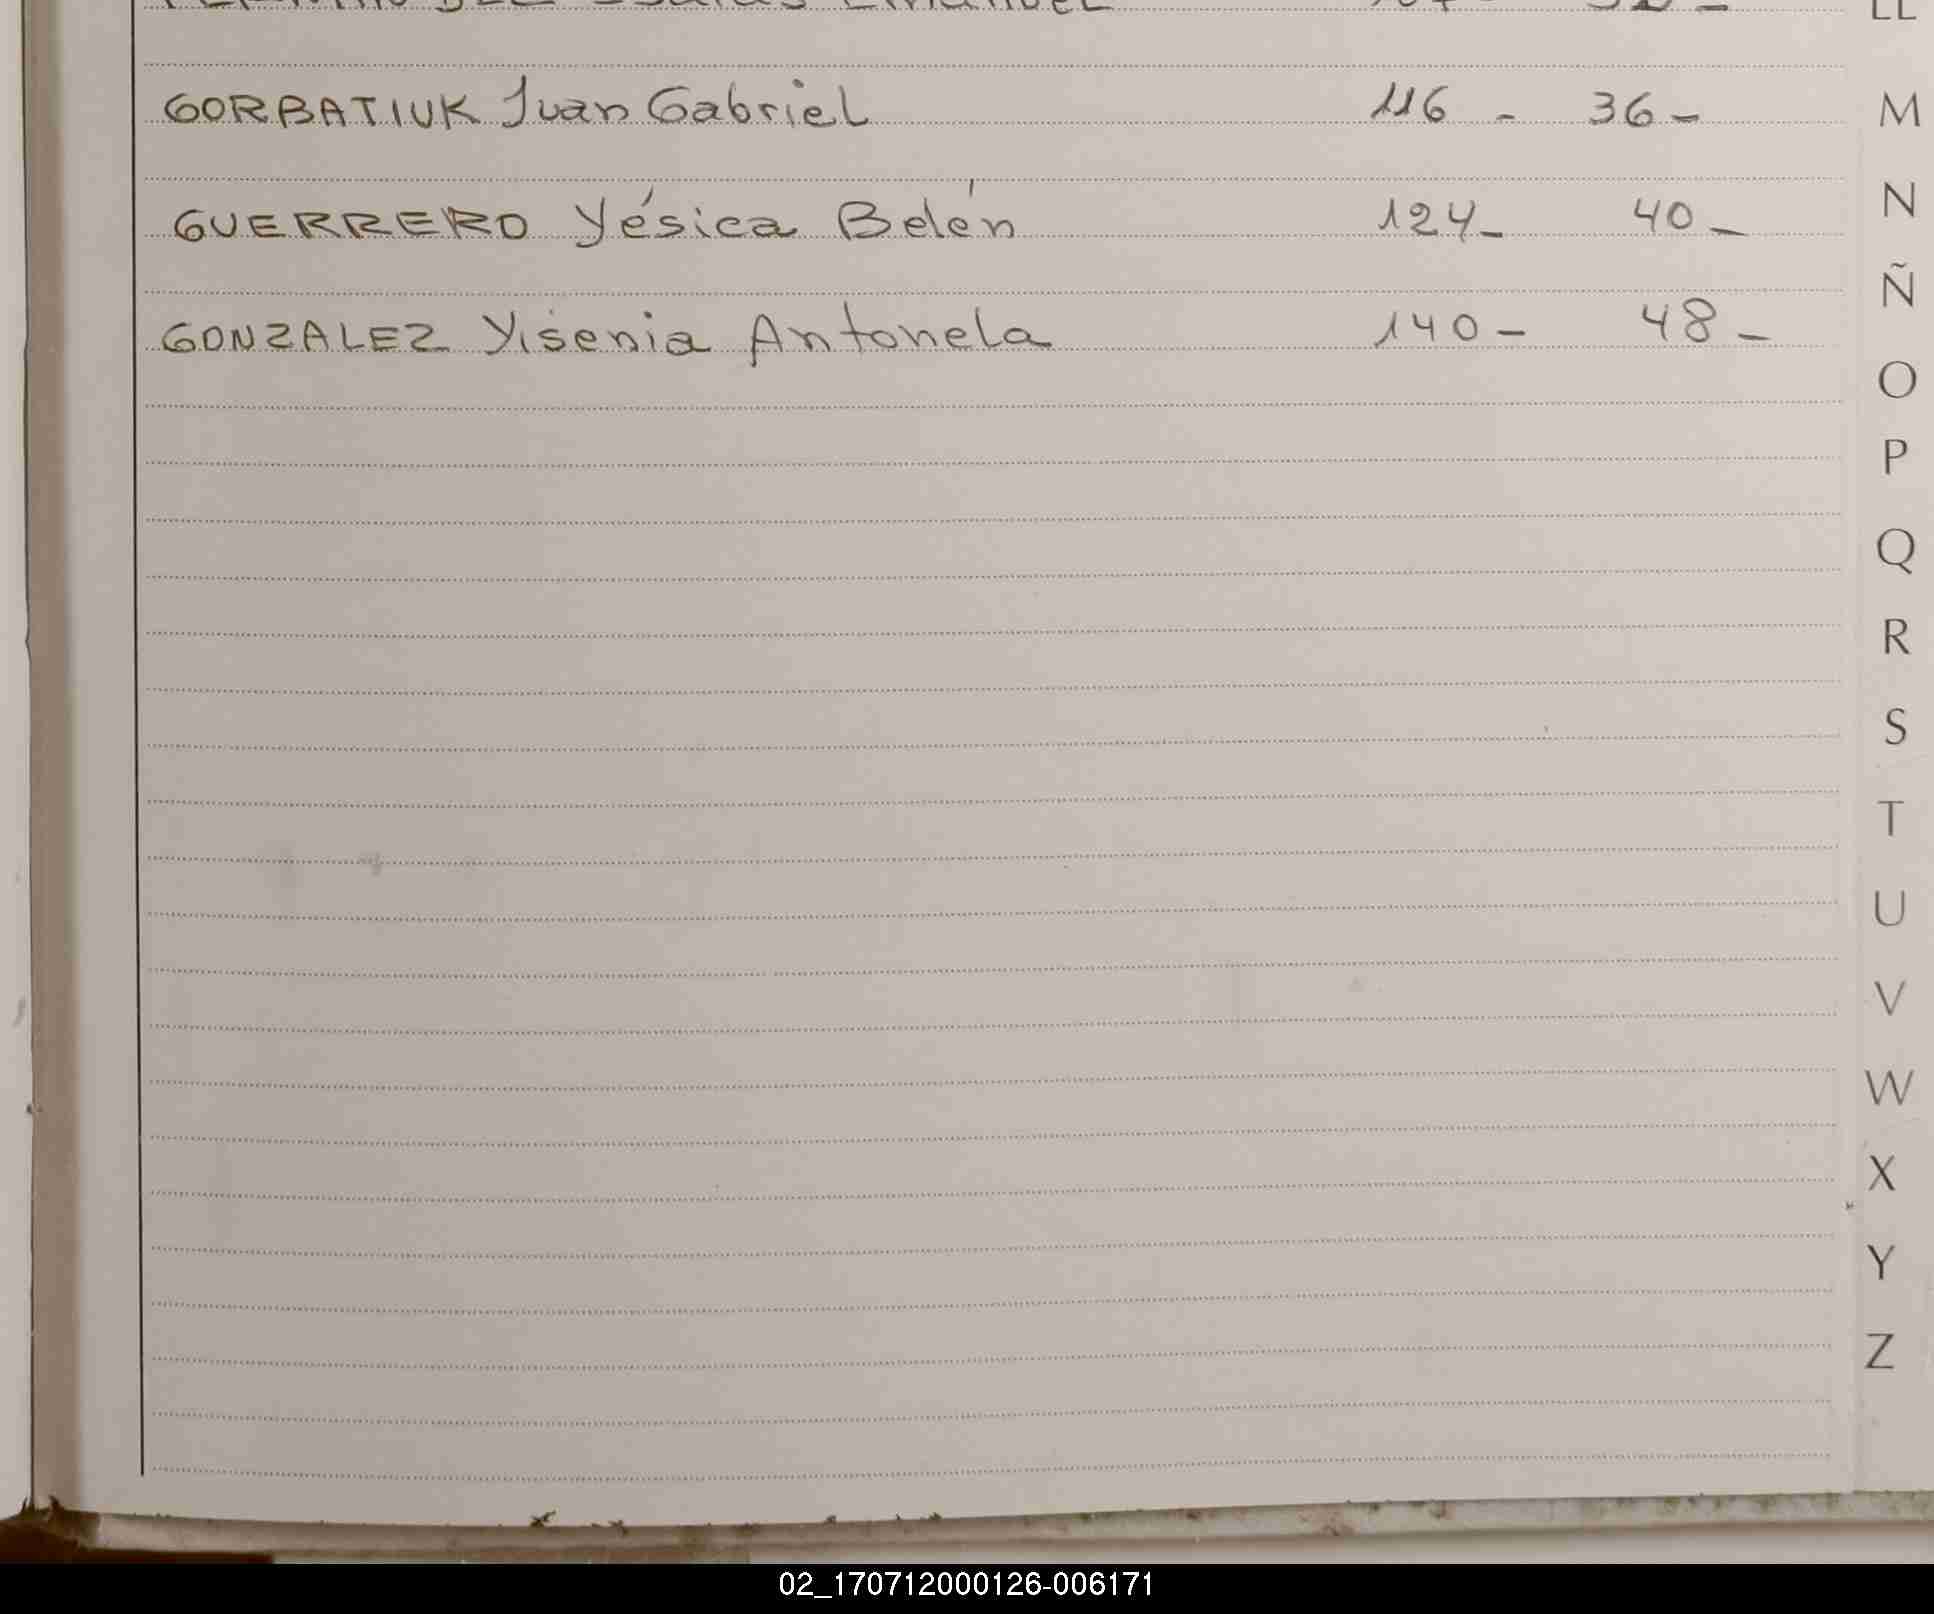 Isaías Emanuel
LL
GORBATIUK Juan Gabriel 116 - 36 -
M
GUERRERO Yésica Belén 124 - 40 -
N
Ñ
GONZALEZ Yisenia Antonela 140 - 48 -
O
P
Q
R
S
T
U
V
W
X
Y
Z
02_170712000126-006171